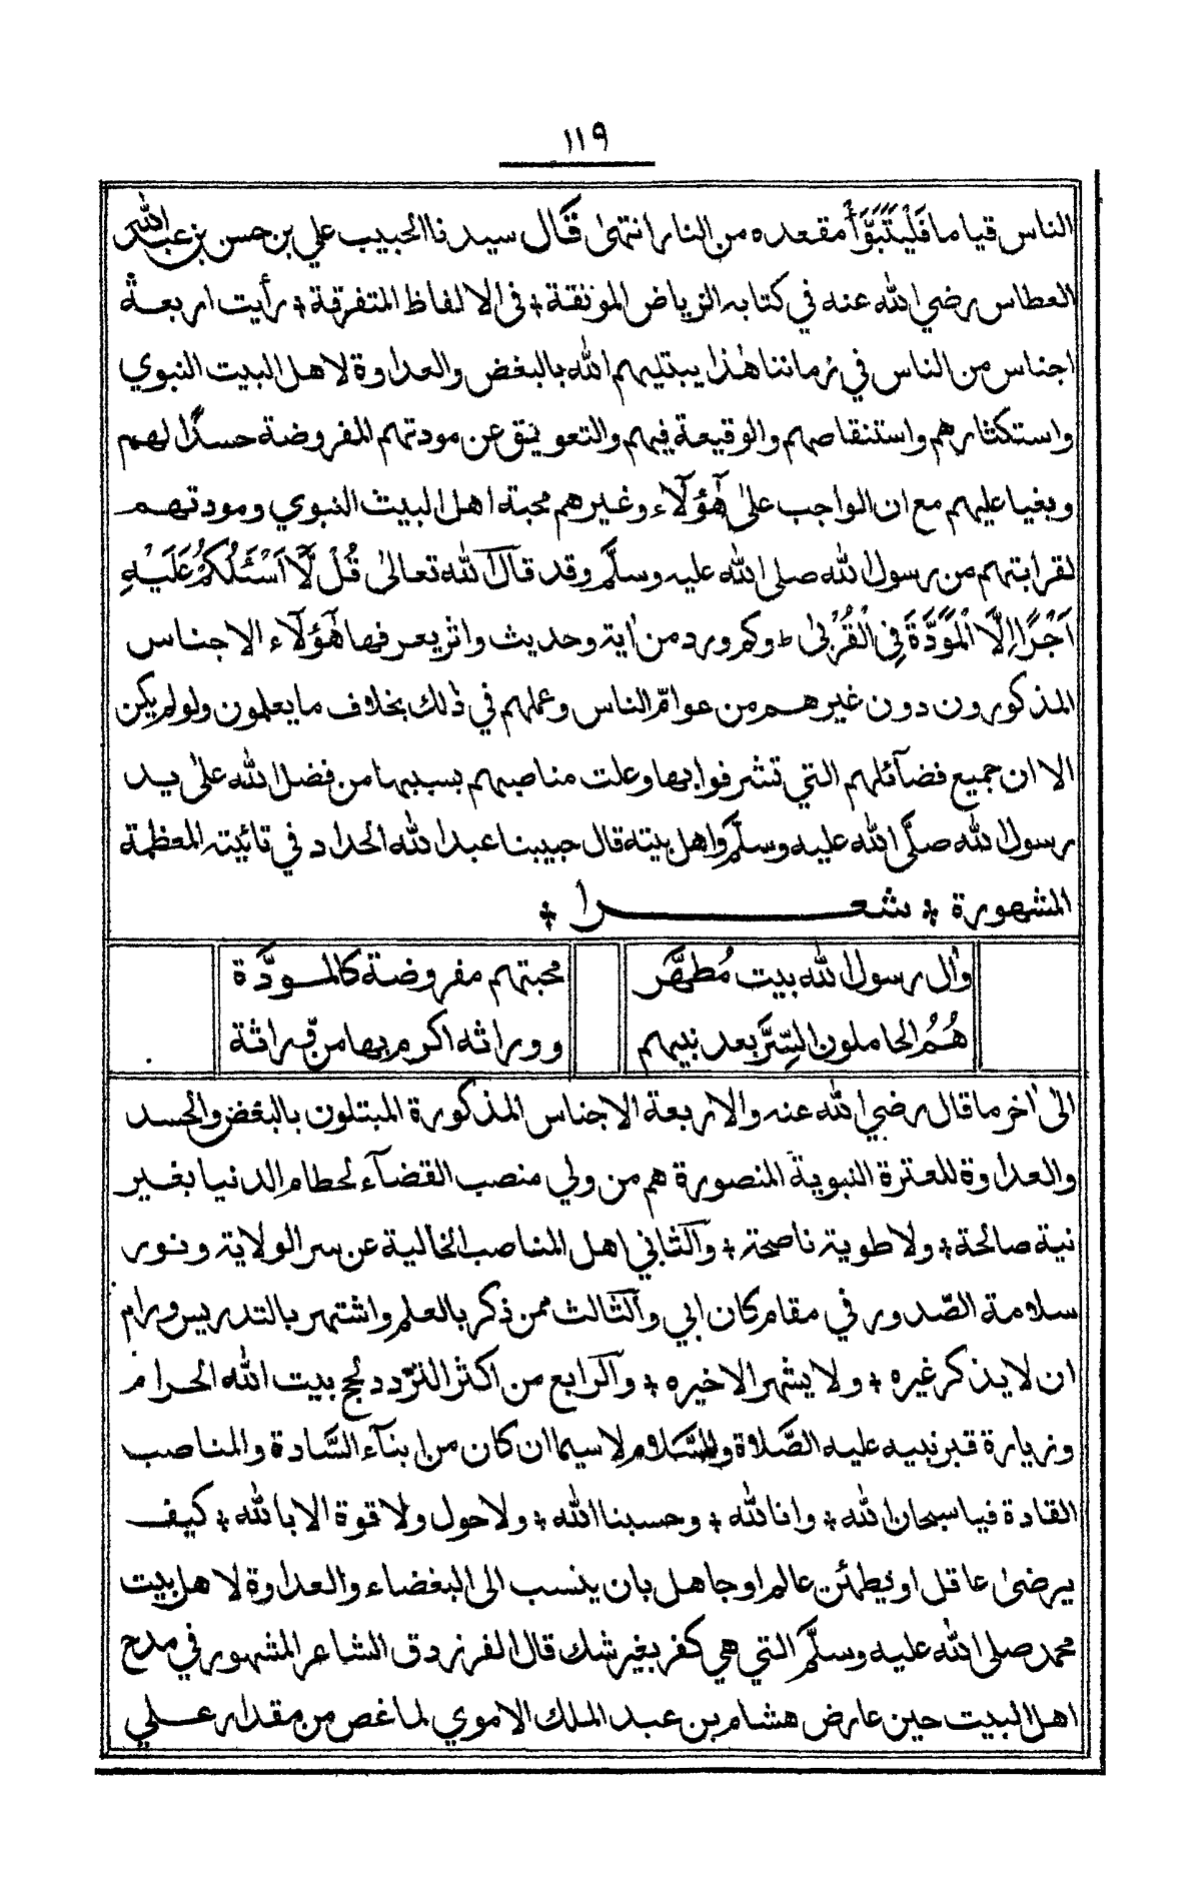 ١١٩
الناس قياما فَلْيَتَبَوَّأْ مقعده من النار انتهىٰ قَال سيدنا الحبيب علي بن حسن بن عبد الله
العطاس رضي الله عنه في كتابه الرياض المونقة ٭ فى الالفاظ المتفرقة ٭ رأيت اربعة
اجناس من الناس في زماننا هٰذا يبتليهم الله بالبغض والعداوة لاهل البيت النبوي
واستكثارهم واستنقاصهم والوقيعة فيهم والتعويق عن مودتهم المفروضة حسدًا لهم
وبغيا عليهم مع ان الواجب علىٰ هٰٓؤلٓاء وغيرهم محبة اهل البيت النبوي ومودتهم
لقرابتهم من رسول الله صلى الله عليه وسلَّم وقد قال الله تعالىٰ قُلْ لَّآ اَسْئَلُكُمْ عَلَيْهِ
اَجْرًا اِلَّا الْمَوَدَّةَ فِي الْقُرْبىٰ ط وكم ورد من اٰية وحديث واثر يعرفها هٰٓؤلٓاء الاجناس
المذكورون دون غيرهم من عوامّ الناس وعملهم في ذٰلك بخلاف ما يعلمون ولو لم يكن
الا ان جميع فضآئلهم التي تشرفوا بها وعلت مناصبهم بسببها من فضل الله علىٰ يد
رسول الله صلَّى الله عليه وسلَّم واهل بيته قال حبيبنا عبد الله الحداد في تائيته المعظمة
المشهورة ٭ شعرا ٭
واٰل رسول الله بيت مُطهَّر محبتهم مفروضة كالمودَّة
هُمُ الحاملون السِّرَّ بعد نبيهم ووراثه اكرم بها من وِّراثة
الىٰ اٰخر ما قال رضي الله عنه والاربعة الاجناس المذكورة المبتلون بالبغض والحسد
والعداوة للعترة النبوية المنصورة هم من ولي منصب القضآء لحطام الدنيا بغير
نية صالحة ٭ ولا طوية ناصحة ٭ والثاني اهل المناصب الخالية عن سر الولاية ونور
سلامة الصّدور في مقام كان ابي والثالث ممن ذكر بالعلم واشتهر بالتدريس ورام
ان لا يذكر غيره ٭ ولا يشهر الا خيره ٭ والرابع من اكثر التردد لحج بيت الله الحرام
وزيارة قبر نبيه عليه الصَّلاة والسَّلام لا سيما ان كان من ابنآء السَّادة والمناصب
القادة فيا سبحان الله ٭ وانا لله ٭ وحسبنا الله ٭ ولا حول ولا قوة الا بالله ٭ كيف
يرضىٰ عاقل او يطمئن عالم او جاهل بان ينسب الى البغضاء والعداوة لاهل بيت
محمد صلى الله عليه وسلَّم التي هي كفر بغير شك قال الفرزدق الشاعر المشهور في مدح
اهل البيت حين عارض هشام بن عبد الملك الاموي لما غص من مقدار علي